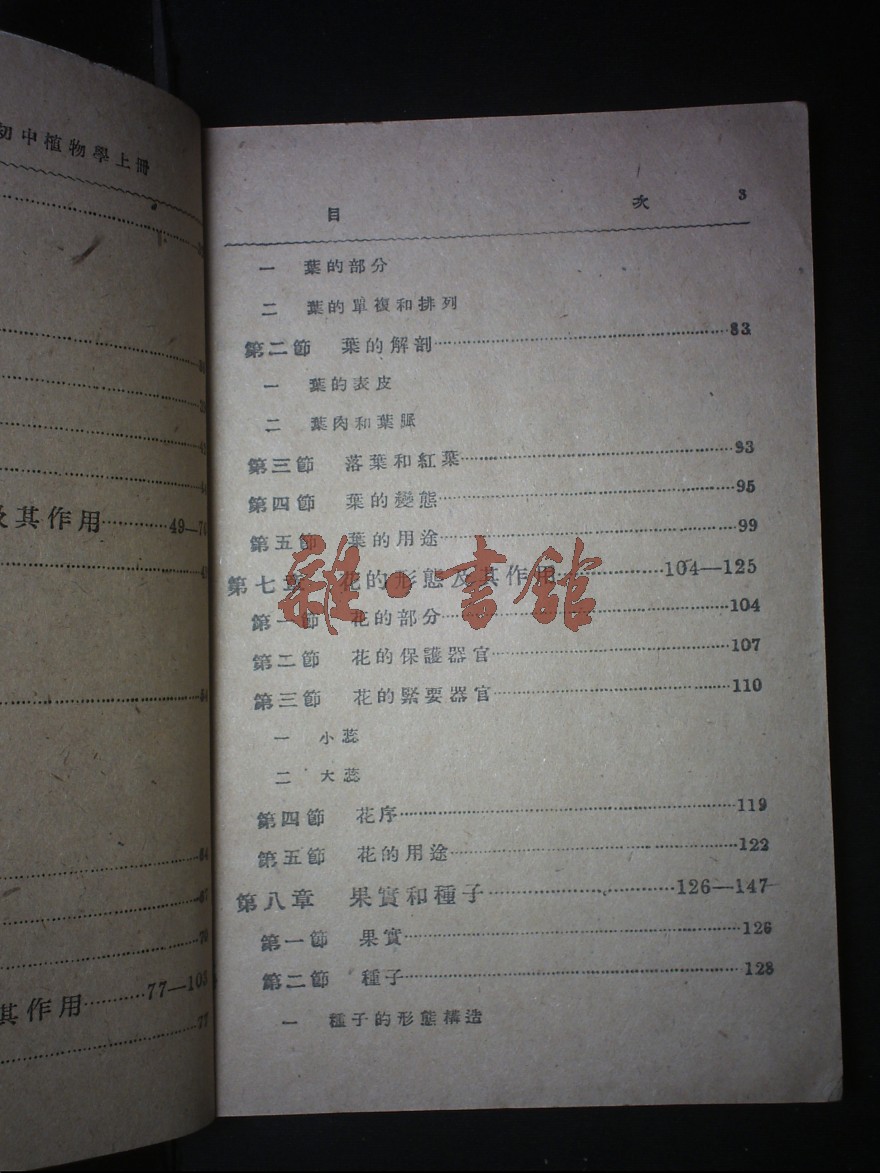 初中植物學上冊
及其作用············49—76
其作用··········77—103
77
目 次 3
一 葉的部分
二 葉的單複和排列
第二節 葉的解剖············83
一 葉的表皮
二 葉肉和葉脈
第三節 落葉和紅葉············93
第四節 葉的變態············95
第五節 葉的用途············99
第七章 花的形態及其作用············104—125
第一節 花的部分············104
第二節 花的保護器官············107
第三節 花的緊要器官············110
一 小蕊
二 大蕊
第四節 花序············119
第五節 花的用途············122
第八章 果實和種子············126—147
第一節 果實············126
第二節 種子············128
一 種子的形態構造
雜·書館